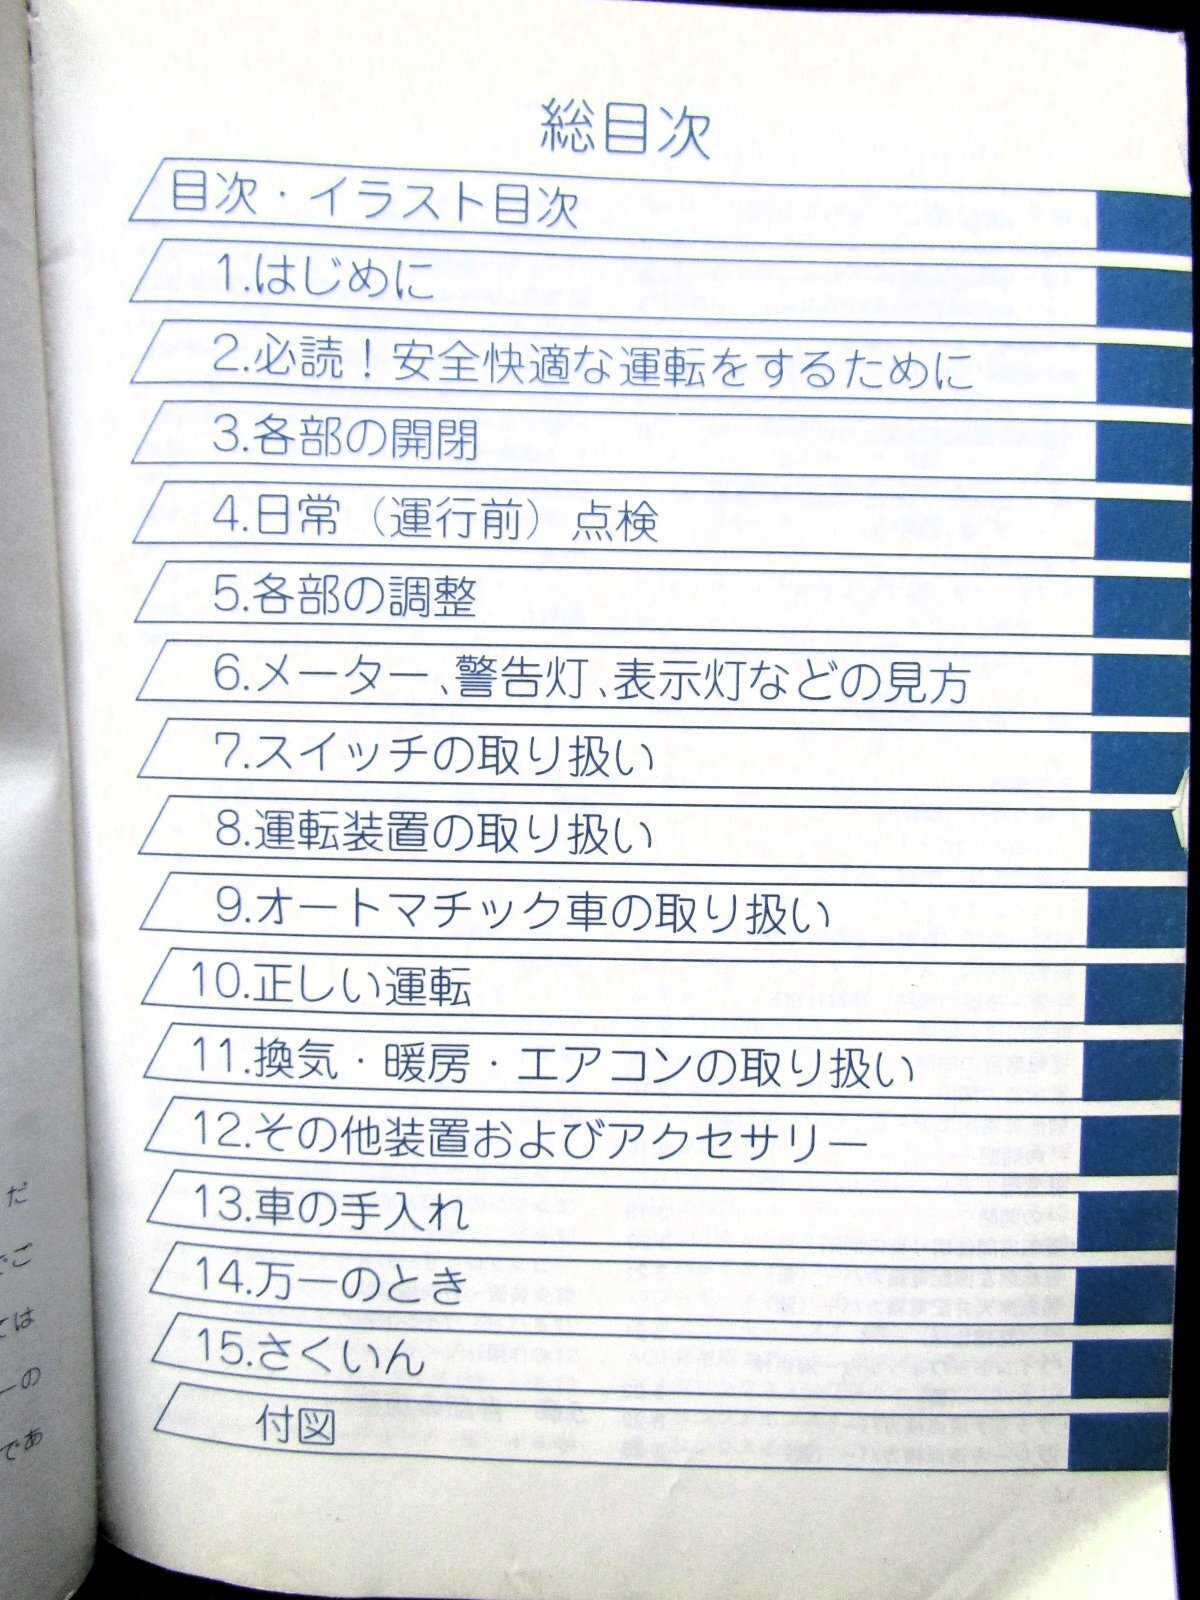 総目次
目次・イラスト目次
1.はじめに
2.必読！安全快適な運転をするために
3.各部の開閉
4.日常（運行前）点検
5.各部の調整
6.メーター、警告灯、表示灯などの見方
7.スイッチの取り扱い
8.運転装置の取り扱い
9.オートマチック車の取り扱い
10.正しい運転
11.換気・暖房・エアコンの取り扱い
12.その他装置およびアクセサリー
13.車の手入れ
14.万一のとき
15.さくいん
付図
だ
でご
ては
ーの
であ